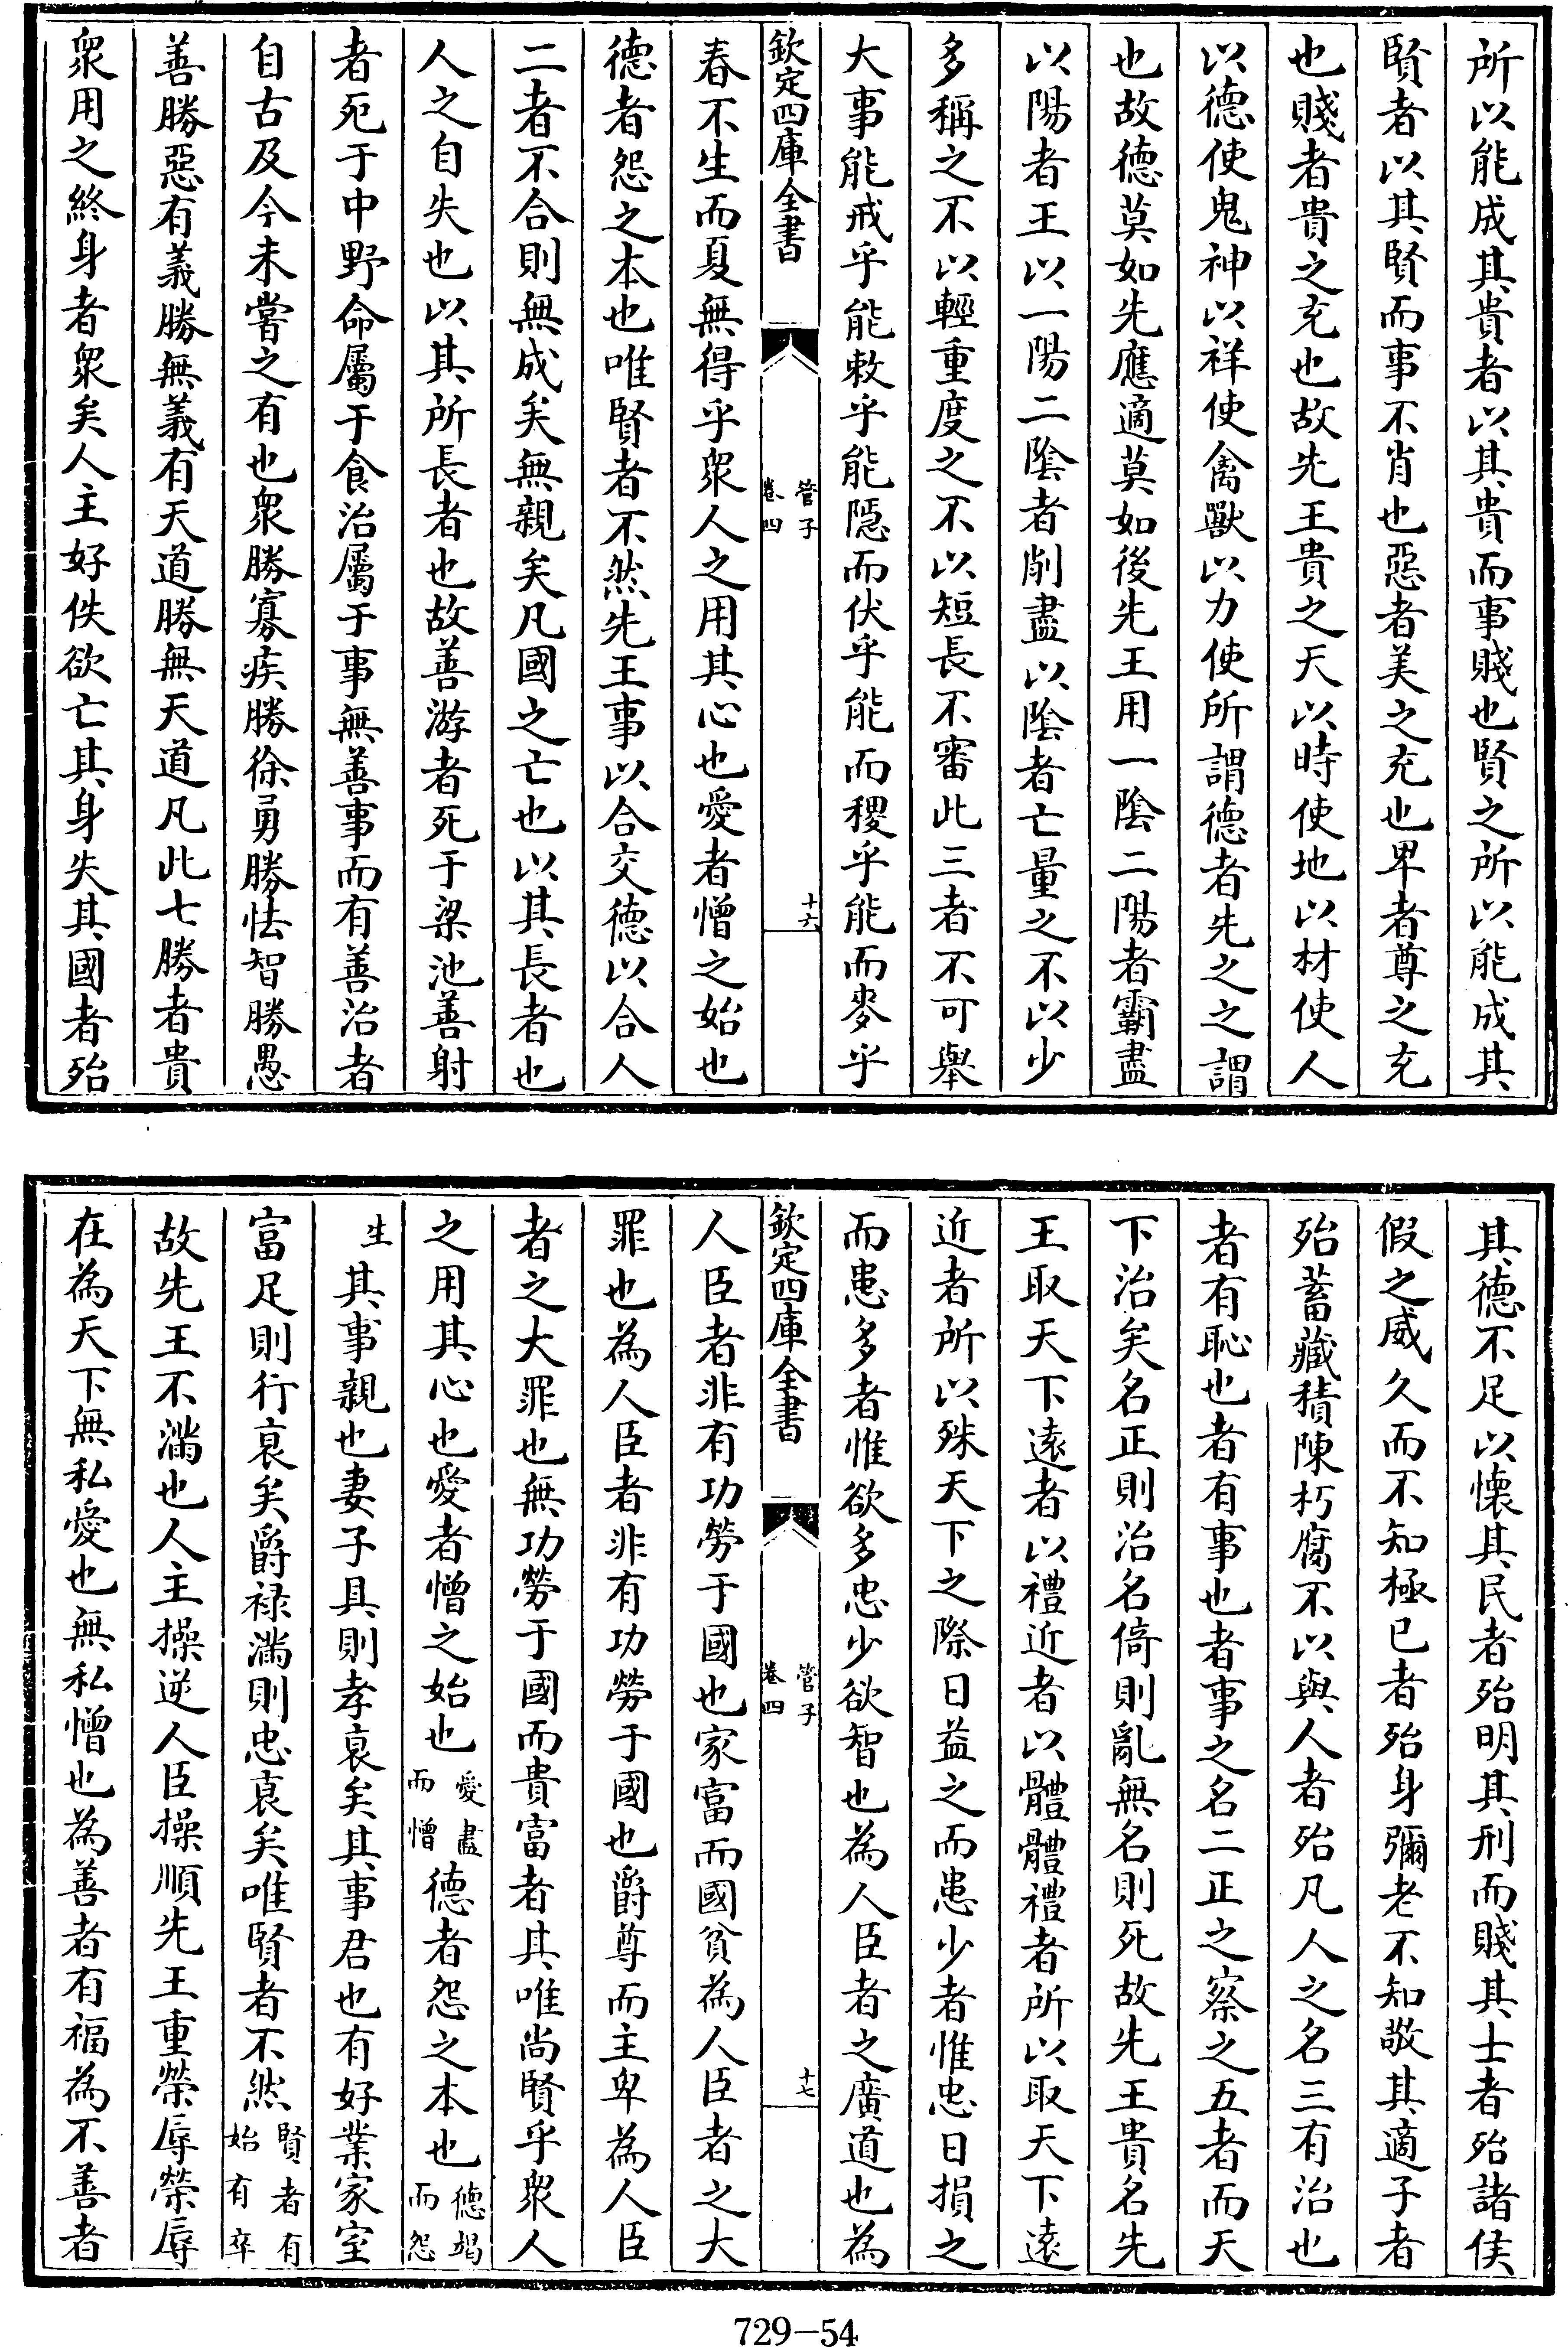 所以能成其貴者以其貴而事賤也賢之所以能成其
賢者以其賢而事不肖也惡者美之充也卑者尊之充
也賤者貴之充也故先王貴之天以時使地以材使人
以德使鬼神以祥使禽獸以力使所謂德者先之之謂
也故德莫如先應適莫如後先王用一陰二陽者霸盡
以陽者王以一陽二陰者削盡以陰者亡量之不以少
多稱之不以輕重度之不以短長不審此三者不可舉
大事能戒乎能敕乎能隱而伏乎能而稷乎能而麥乎
欽定四庫全書
管子
卷四
十六
春不生而夏無得乎衆人之用其心也愛者憎之始也
德者怨之本也唯賢者不然先王事以合交德以合人
二者不合則無成矣無親矣凡國之亡也以其長者也
人之自失也以其所長者也故善游者死于梁池善射
者死于中野命屬于食治屬于事無善事而有善治者
自古及今未嘗之有也衆勝寡疾勝徐勇勝怯智勝愚
善勝惡有義勝無義有天道勝無天道凡此七勝者貴
衆用之終身者衆矣人主好佚欲亡其身失其國者殆
其德不足以懷其民者殆明其刑而賤其士者殆諸侯
假之威久而不知極已者殆身彌老不知敬其適子者
殆蓄藏積陳朽腐不以與人者殆凡人之名三有治也
者有恥也者有事也者事之名二正之察之五者而天
下治矣名正則治名倚則亂無名則死故先王貴名先
王取天下遠者以禮近者以體體禮者所以取天下遠
近者所以殊天下之際日益之而患少者惟忠日損之
而患多者惟欲多忠少欲智也為人臣者之廣道也為
欽定四庫全書
管子
卷四
十七
人臣者非有功勞于國也家富而國貧為人臣者之大
罪也為人臣者非有功勞于國也爵尊而主卑為人臣
者之大罪也無功勞于國而貴富者其唯尚賢乎衆人
之用其心也愛者憎之始也愛盡而憎德者怨之本也德竭而怨
生其事親也妻子具則孝衰矣其事君也有好業家室
富足則行衰矣爵祿滿則忠衰矣唯賢者不然賢者有始有卒
故先王不滿也人主操逆人臣操順先王重榮辱榮辱
在為天下無私愛也無私憎也為善者有福為不善者
729-54